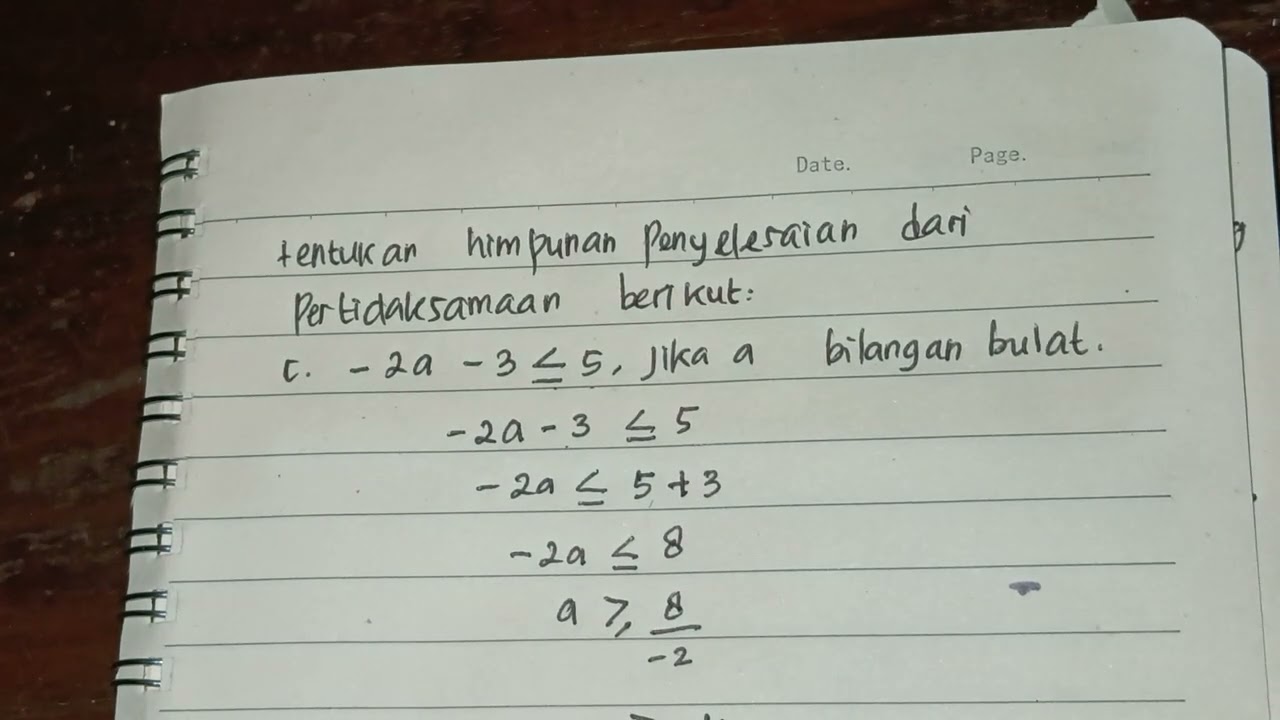 Date. Page.
tentukan himpunan Penyelesaian dari
Pertidaksamaan berikut:
c. -2a - 3 ≤ 5, Jika a bilangan bulat.
-2a - 3 ≤ 5
-2a ≤ 5 + 3
-2a ≤ 8
a ≥ 8
-2